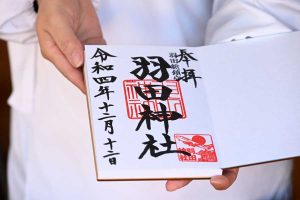 奉拝
羽田神社
令和四年十二月十二日